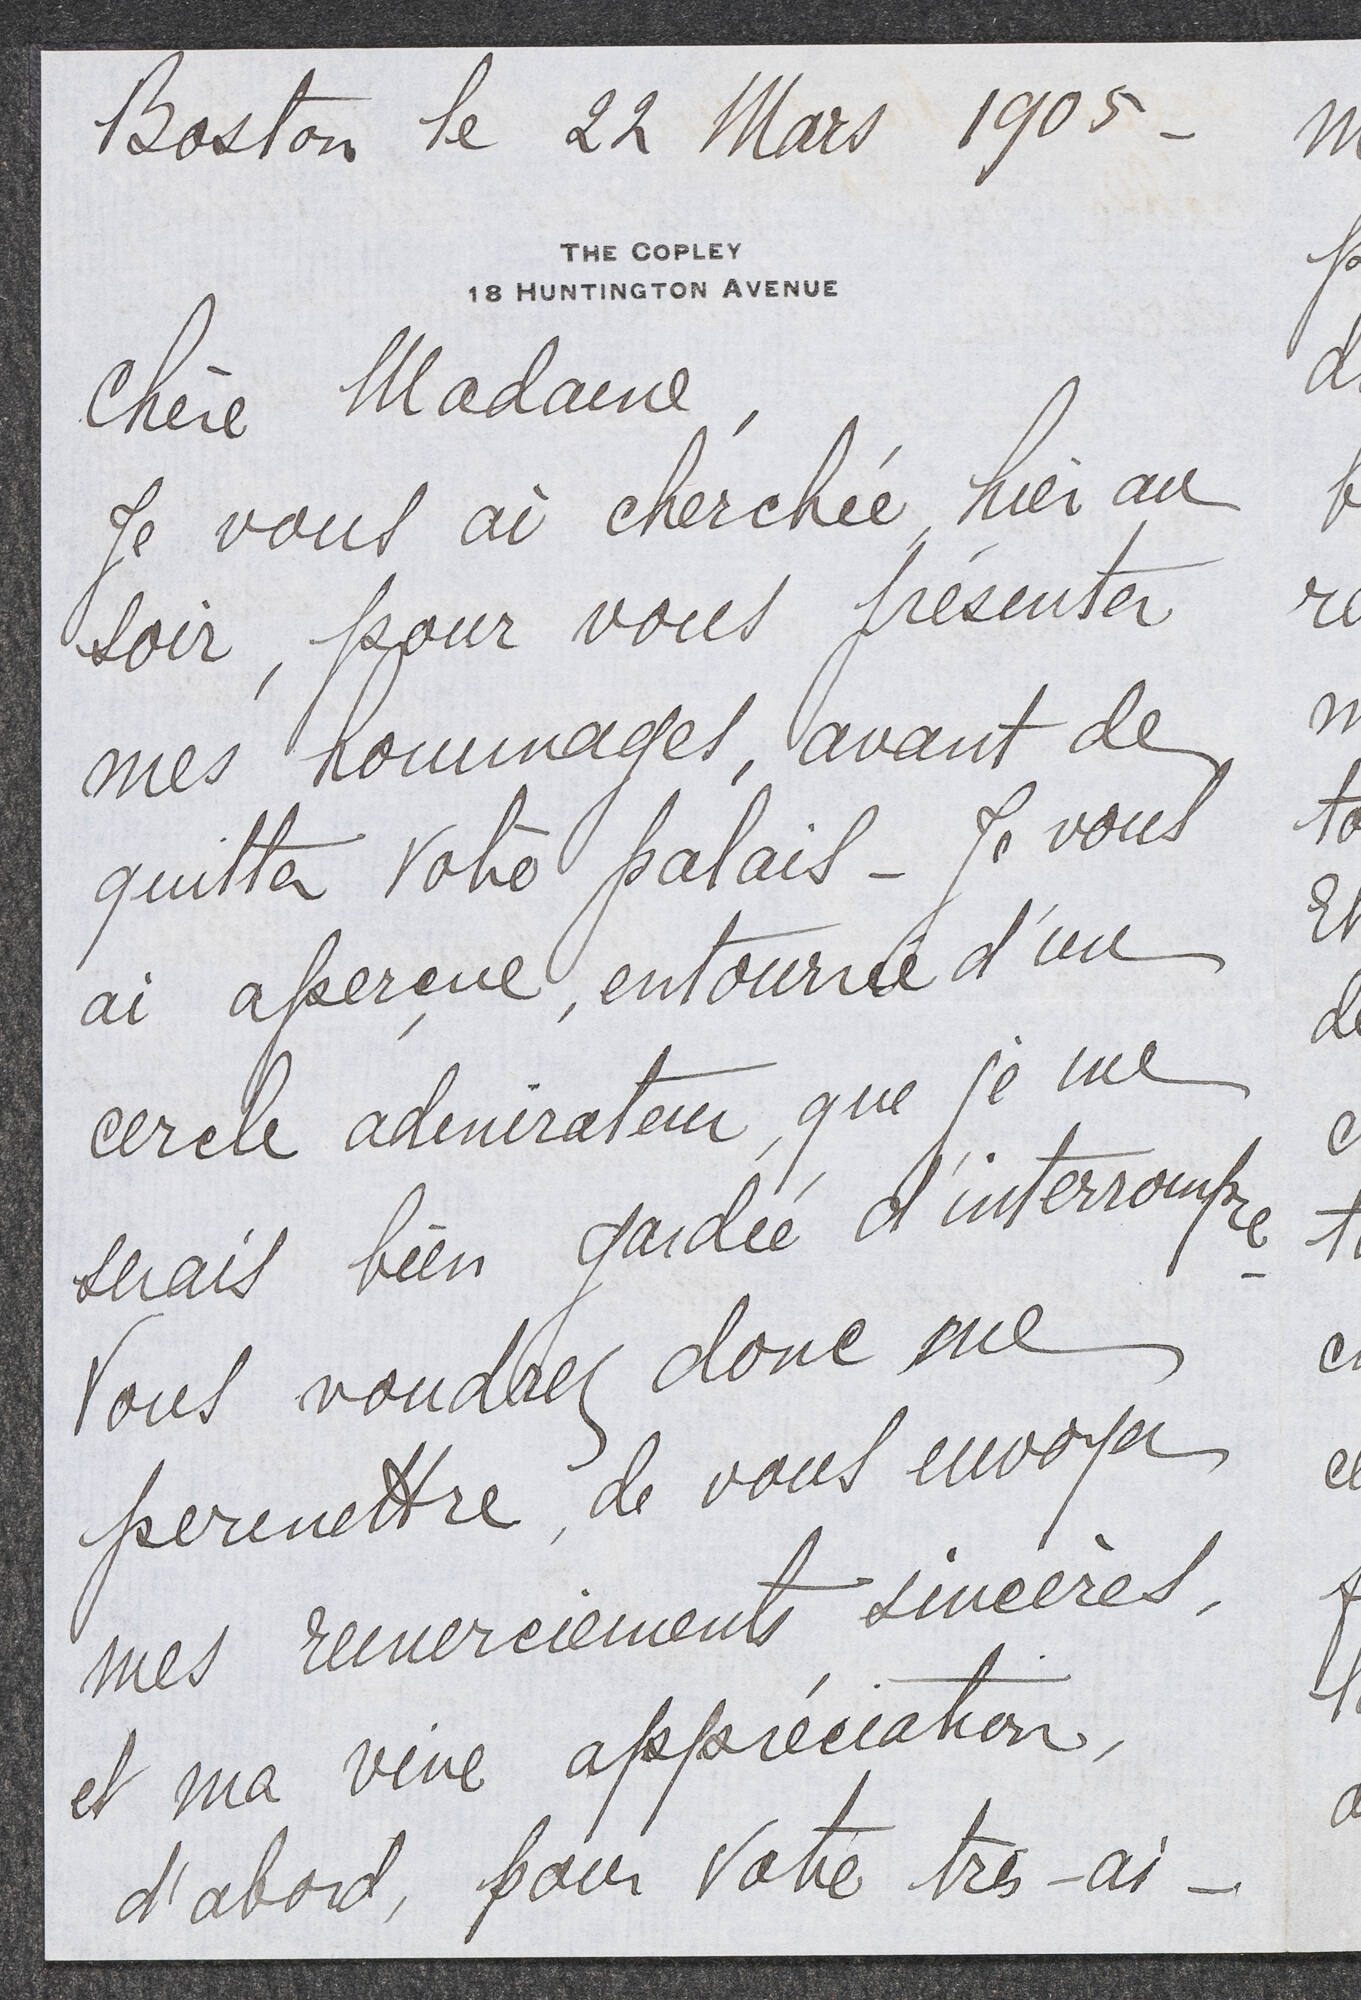 Boston le 22 Mars 1905 -
THE COPLEY
18 HUNTINGTON AVENUE
Chère Madame,
Je vous ai cherchée, hier au
soir, pour vous présenter
mes hommages, avant de
quitter Votre palais - Je vous
ai aperçue, entourée d'un
cercle admirateur, que je me
serais bien gardée d'interrompre -
Vous voudrez donc me
permettre, de vous envoyer
mes remerciements sincères,
et ma vive appréciation,
d'abord, pour Votre très-ai-